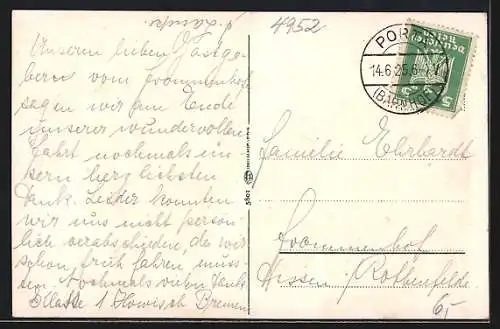 4952
Unseren lieben Gastge-
bern vom Frommenhof
sagen wir am Ende
unserer wundervollen
Fahrt nochmals un-
sern herzlichsten
Dank. Leider konnten
wir uns nicht persön-
lich verabschieden, da wir
schon früh fahren muss-
ten. Nochmals vielen Dank
Klasse 1 Bremen
PORT
14.6.25.6
(BAHNHOF)
Deutsches
Reich
5 5
5807
Familie Ehrhardt
Frommenhof
Dissen, Rothenfelde